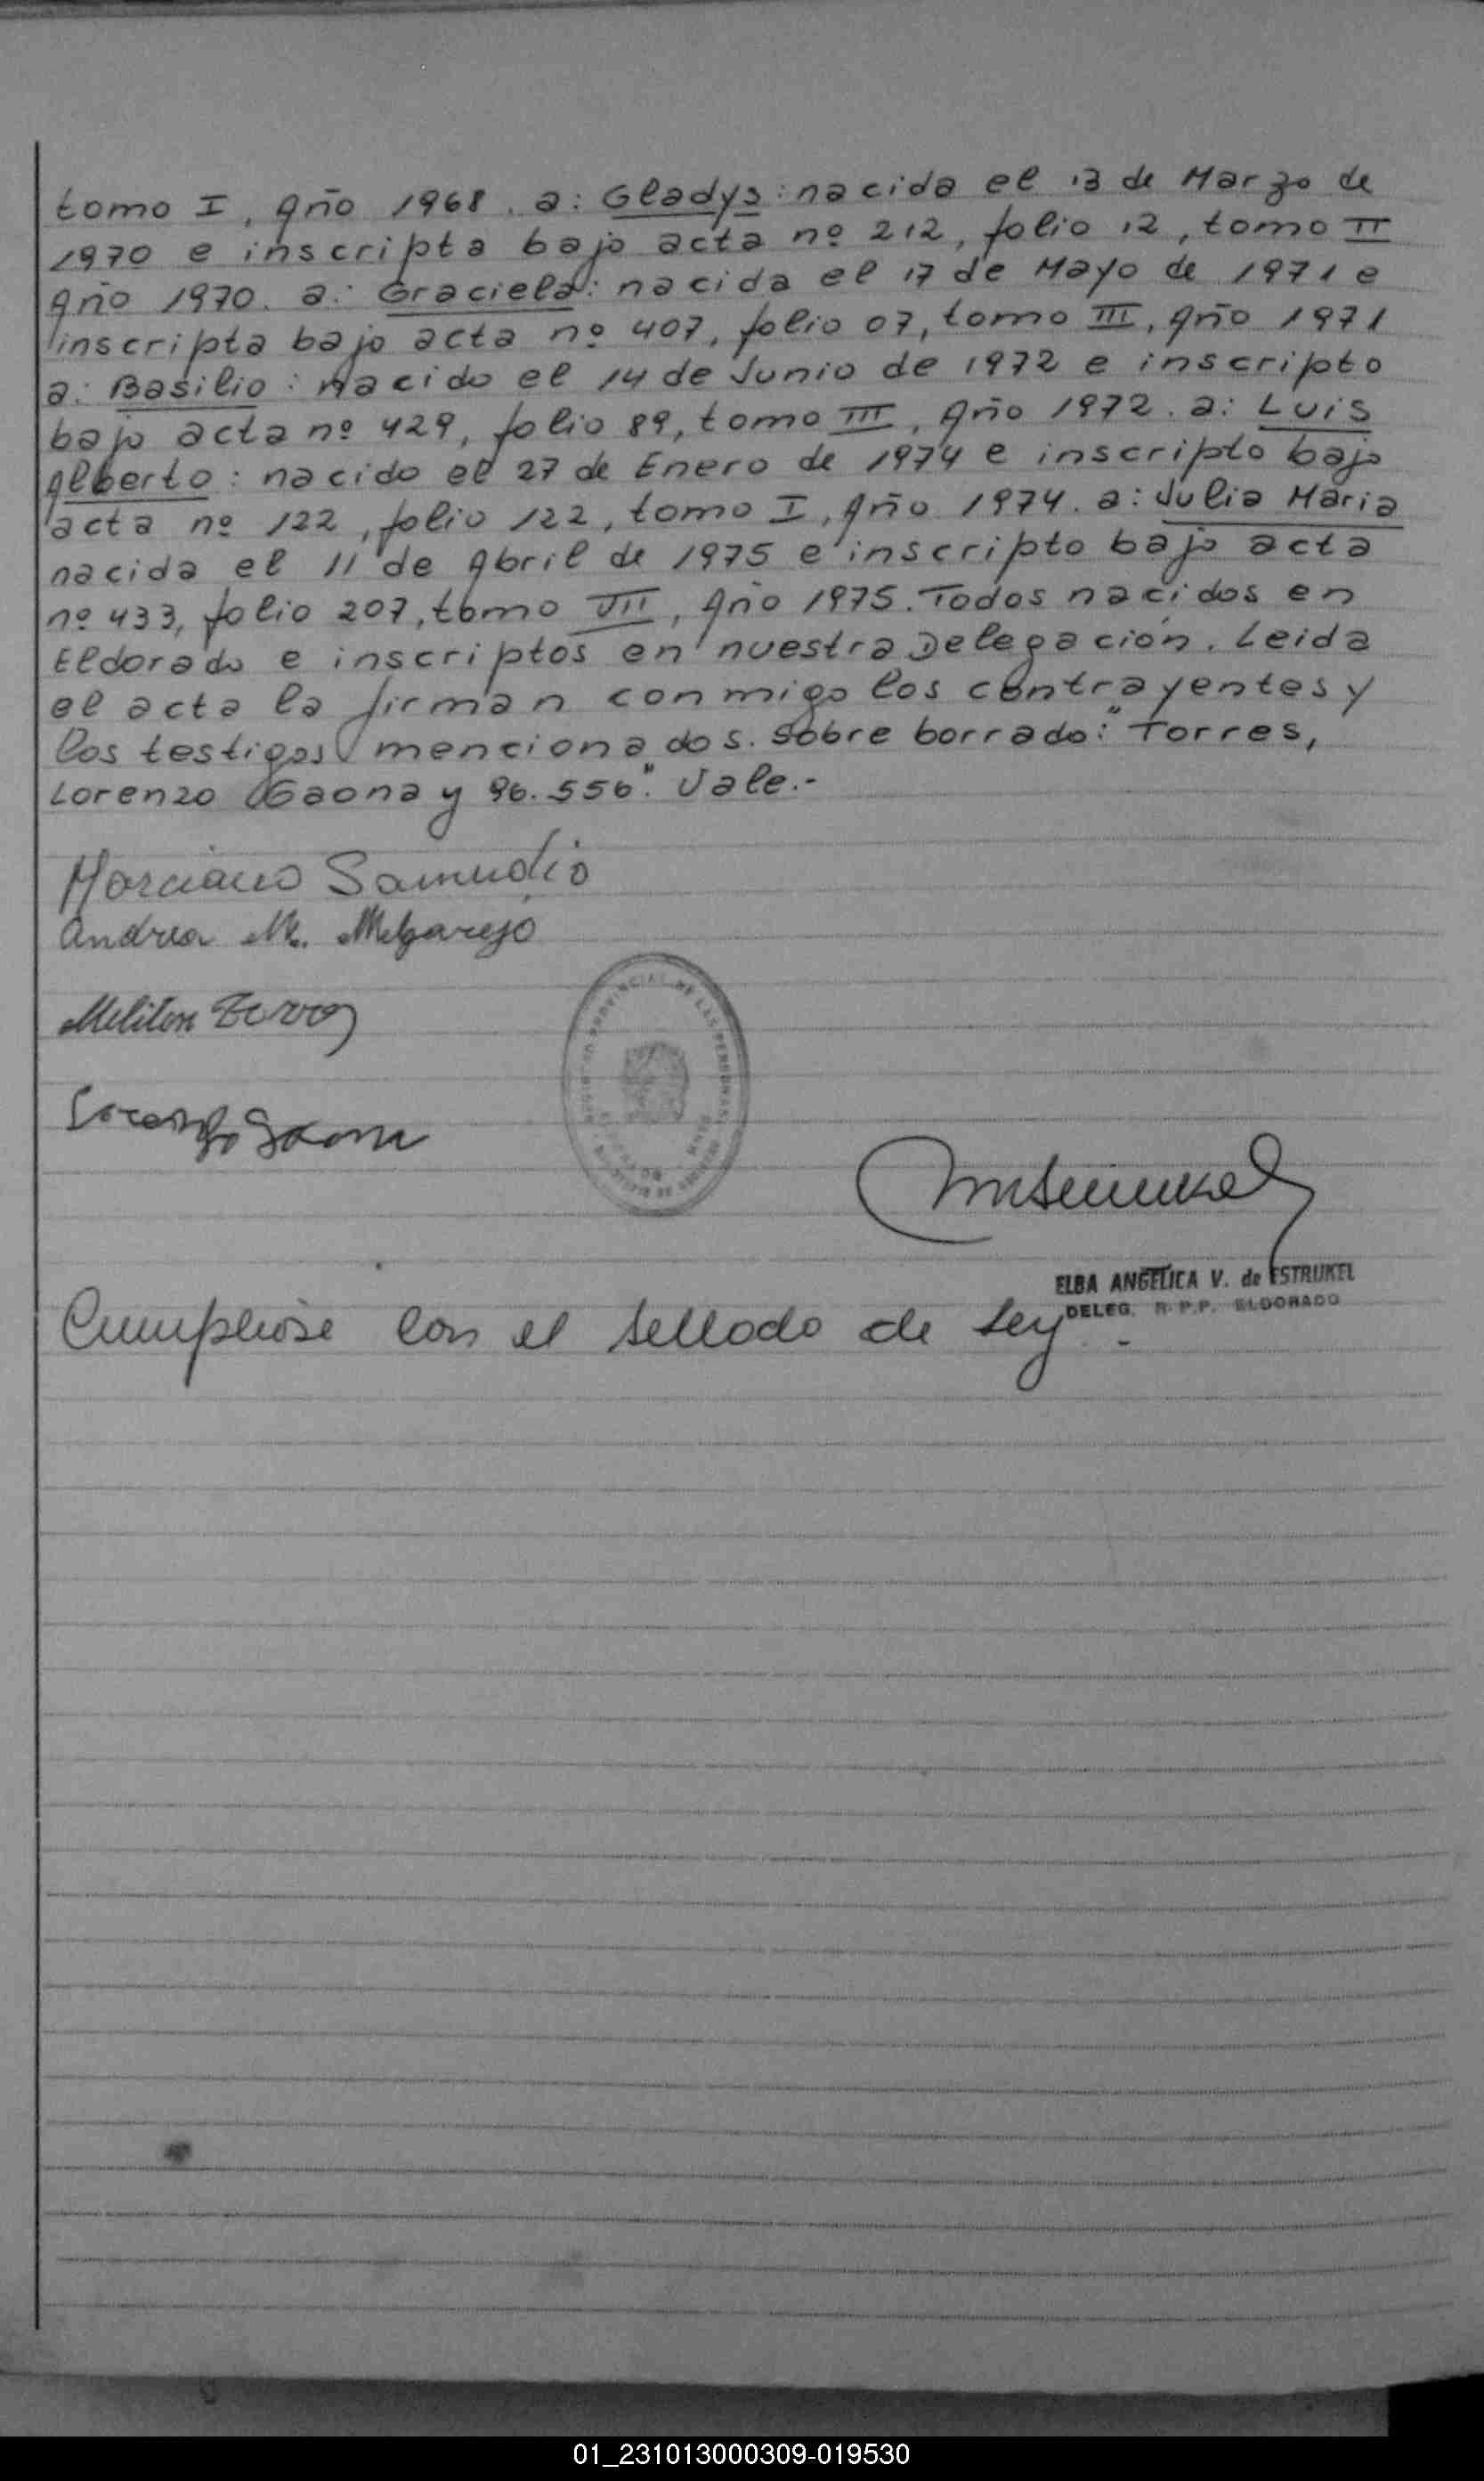 tomo I, Año 1968. a: Gladys: nacida el 13 de Marzo de
1970 e inscripta bajo acta nº 212, folio 12, tomo II
Año 1970. a: Graciela: nacida el 17 de Mayo de 1971 e
inscripta bajo acta nº 407, folio 07, tomo III, Año 1971
a: Basilio: nacido el 14 de Junio de 1972 e inscripto
bajo acta nº 429, folio 89, tomo III, Año 1972. a: Luis
Alberto: nacido el 27 de Enero de 1974 e inscripto bajo
acta nº 122, folio 122, tomo I, Año 1974. a: Julia Maria
nacida el 11 de Abril de 1975 e inscripto bajo acta
nº 433, folio 207, tomo VII, Año 1975. Todos nacidos en
Eldorado e inscriptos en nuestra Delegación. Leida
el acta la firman conmigo los contrayentes y
los testigos mencionados. Sobre borrado: "Torres,
Lorenzo Gaona y 96.556". Vale.-
Marciano Samudio
Andrea M. Melgarejo
Meliton Torres
Lorenzo Gaona
ELBA ANGELICA V. de ESTRUKEL
DELEG. R.P.P. ELDORADO
Cumpliose con el sellado de Ley.-
01_231013000309-019530